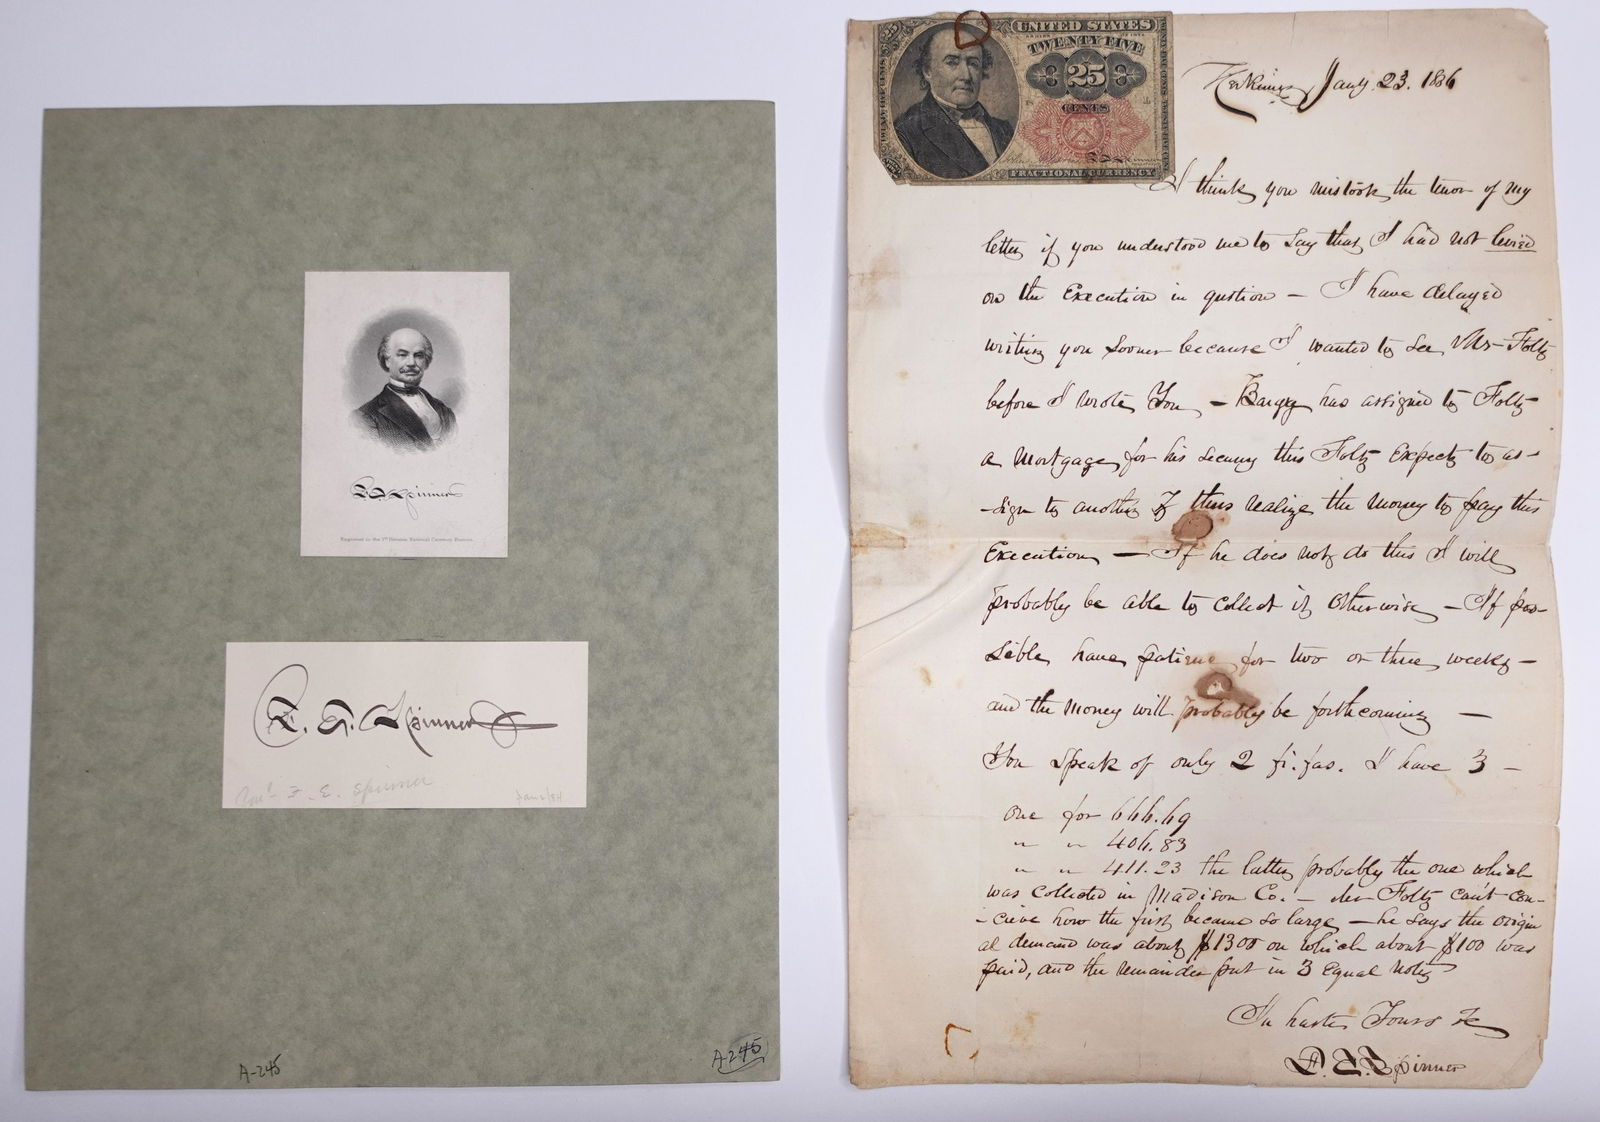 F. E. Spinner
Engraved in the 1st Division National Currency Bureau.
F. E. Spinner
Honl. F. E. Spinner
A-245
A-245
UNITED STATES
TWENTY FIVE
25
CENTS
FRACTIONAL CURRENCY
Herkimer Jany. 23. 1836
I think you mistook the tenor of my
letter if you understood me to say that I had not levied
on the Execution in qustion – I have delayed
writing you sooner because I wanted to see Mr- Foltz
before I wrote You – Bargy has assigned to Foltz
a Mortgage for his secuny this Foltz expects to as-
-sign to another & thus realize the money to pay this
Execution – If he does not do this I will
probably be able to collect it otherwise – If pos-
sible have patience for two or three weeks –
and the money will probably be forthcoming –
You speak of only 2 fi. fas. I have 3 –
one for 666.69
" " 406.83
" " 411.23 the latter probably the one which
was collected in Madison Co. – Mr Foltz can't con-
-cieve how the first became so large – he says the origin
al demand was about $1300 on which about $100 was
paid, and the remainder put in 3 equal notes
In haste Yours &c
F. E. Spinner